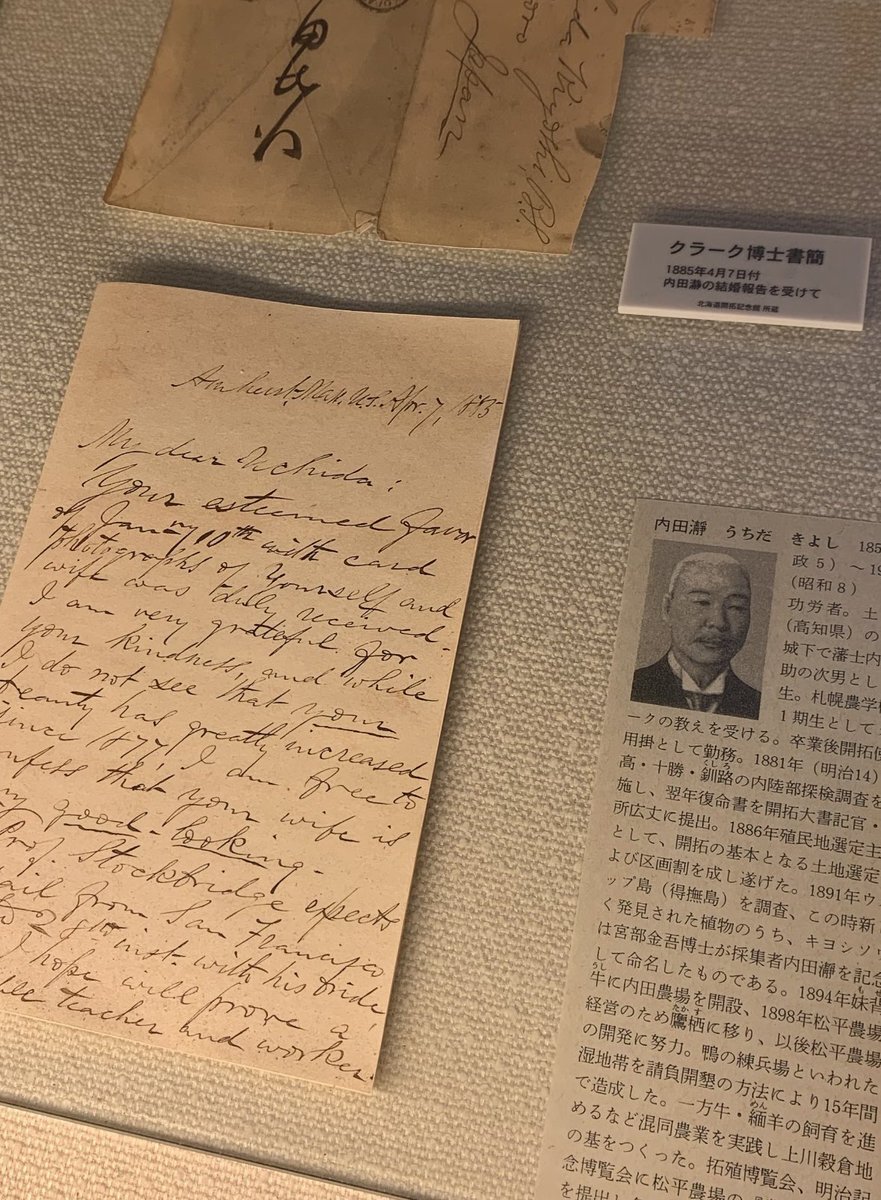 Japan
クラーク博士書簡
1885年4月7日付
内田瀞の結婚報告を受けて
北海道開拓記念館 所蔵
Amherst, Mass. U.S. Apr. 7, 1885
My dear Uchida:
Your esteemed favor
of Jan'ny 10th with card
photographs of yourself and
wife was duly received.
I am very grateful for
your kindness, and while
I do not see that your
beauty has greatly increased
since 1877, I am free to
confess that your wife is
good-looking.
Prof. Stockbridge expects
sail from San Francisco
8th inst. with his bride
I hope will prove a
teacher and worker.
内田瀞 うちだ きよし 185
政5）～19
（昭和8）
功労者。土
（高知県）の
城下で藩士内
助の次男とし
生。札幌農学
1期生として
ークの教えを受ける。卒業後開拓使
用掛として勤務。1881年（明治14）
高・十勝・釧路の内陸部探検調査を
施し、翌年復命書を開拓大書記官・
所広丈に提出。1886年殖民地選定主
として、開拓の基本となる土地選定
よび区画割を成し遂げた。1891年ウ
ップ島（得撫島）を調査、この時新
く発見された植物のうち、キヨシソ
は宮部金吾博士が採集者内田瀞を記念
して命名したものである。1894年妹背
牛に内田農場を開設、1898年松平農場
経営のため鷹栖に移り、以後松平農場
の開発に努力。鴨の練兵場といわれた
湿地帯を請負開墾の方法により15年間
で造成した。一方牛・緬羊の飼育を進
めるなど混同農業を実践し上川穀倉地
の基をつくった。拓殖博覧会、明治記
念博覧会に松平農場の
を提出し